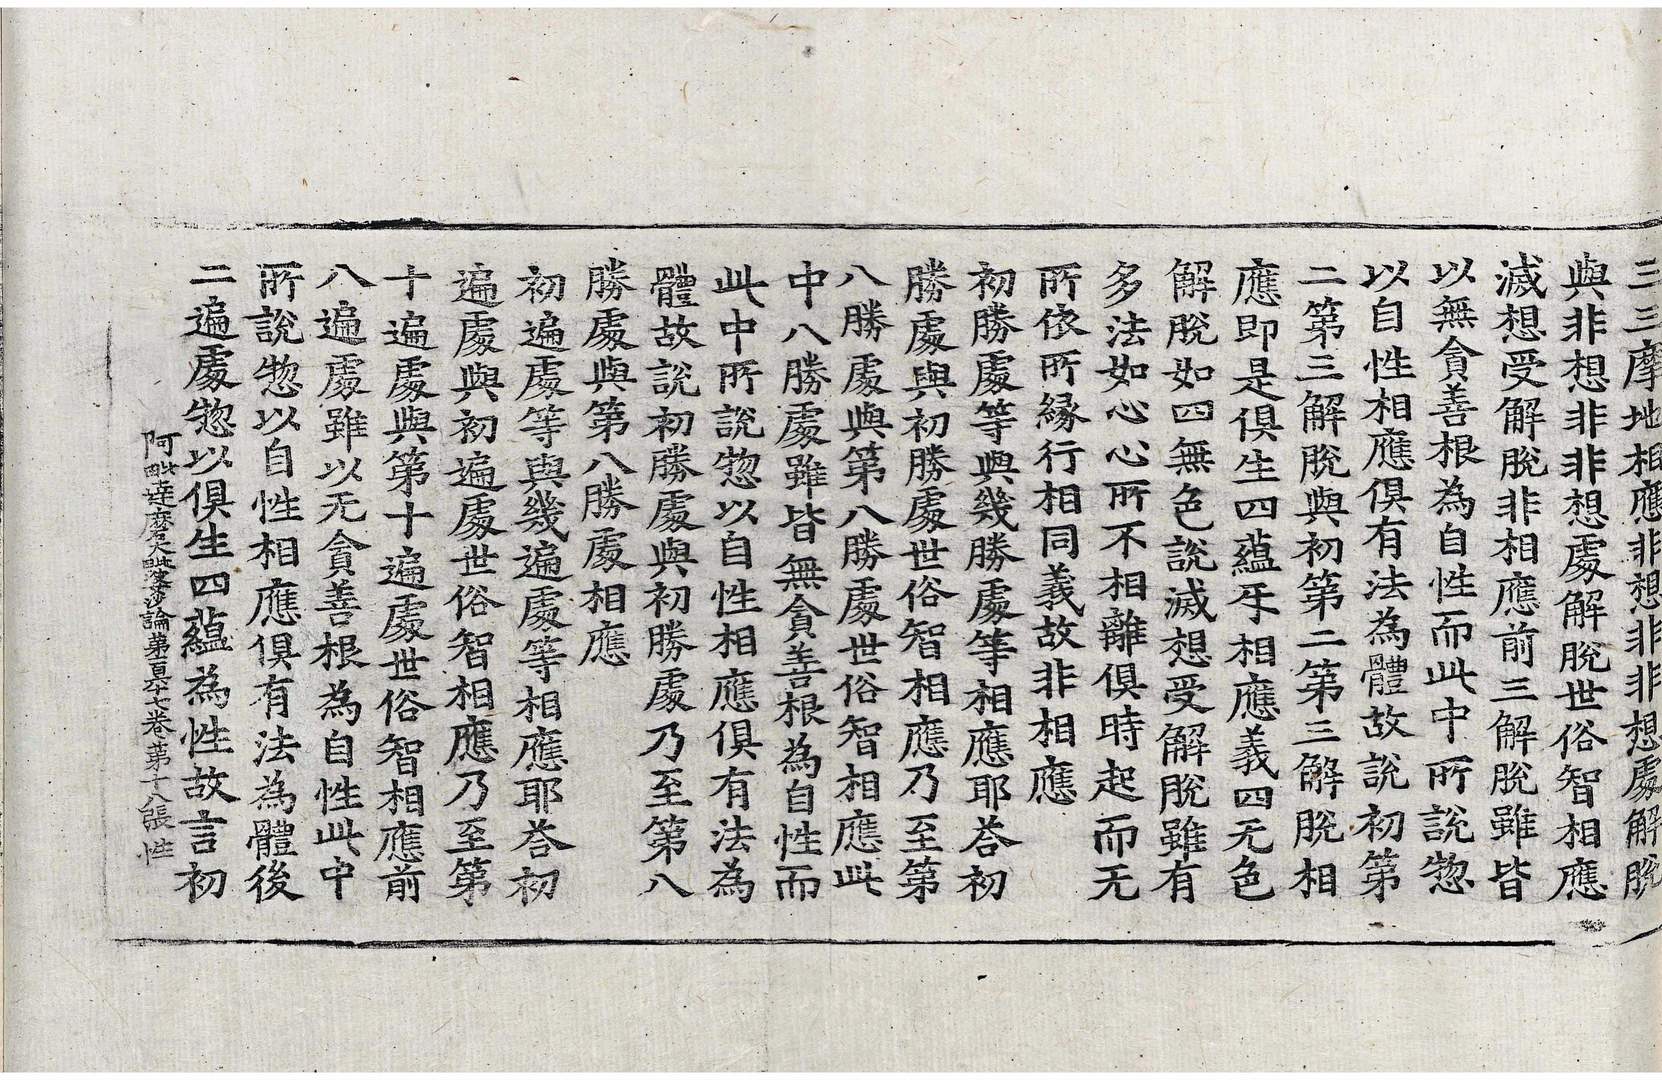 三三摩地相應非想非非想處解脫
與非想非非想處解脫世俗智相應
滅想受解脫非相應前三解脫雖皆
以無貪善根為自性而此中所說惣
以自性相應俱有法為體故說初第
二第三解脫與初第二第三解脫相
應即是俱生四蘊牙相應義四无色
解脫如四無色說滅想受解脫雖有
多法如心心所不相離俱時起而无
所依所縁行相同義故非相應
初勝處等與幾勝處等相應耶荅初
勝處與初勝處世俗智相應乃至第
八勝處與第八勝處世俗智相應此
中八勝處雖皆無貪善根為自性而
此中所說惣以自性相應俱有法為
體故說初勝處與初勝處乃至第八
勝處與第八勝處相應
初遍處等與幾遍處等相應耶荅初
遍處與初遍處世俗智相應乃至第
十遍處與第十遍處世俗智相應前
八遍處雖以无貪善根為自性此中
所說惣以自性相應俱有法為體後
二遍處惣以俱生四蘊為性故言初
阿毗達磨大毗婆沙論第百六十七卷第十八張 性